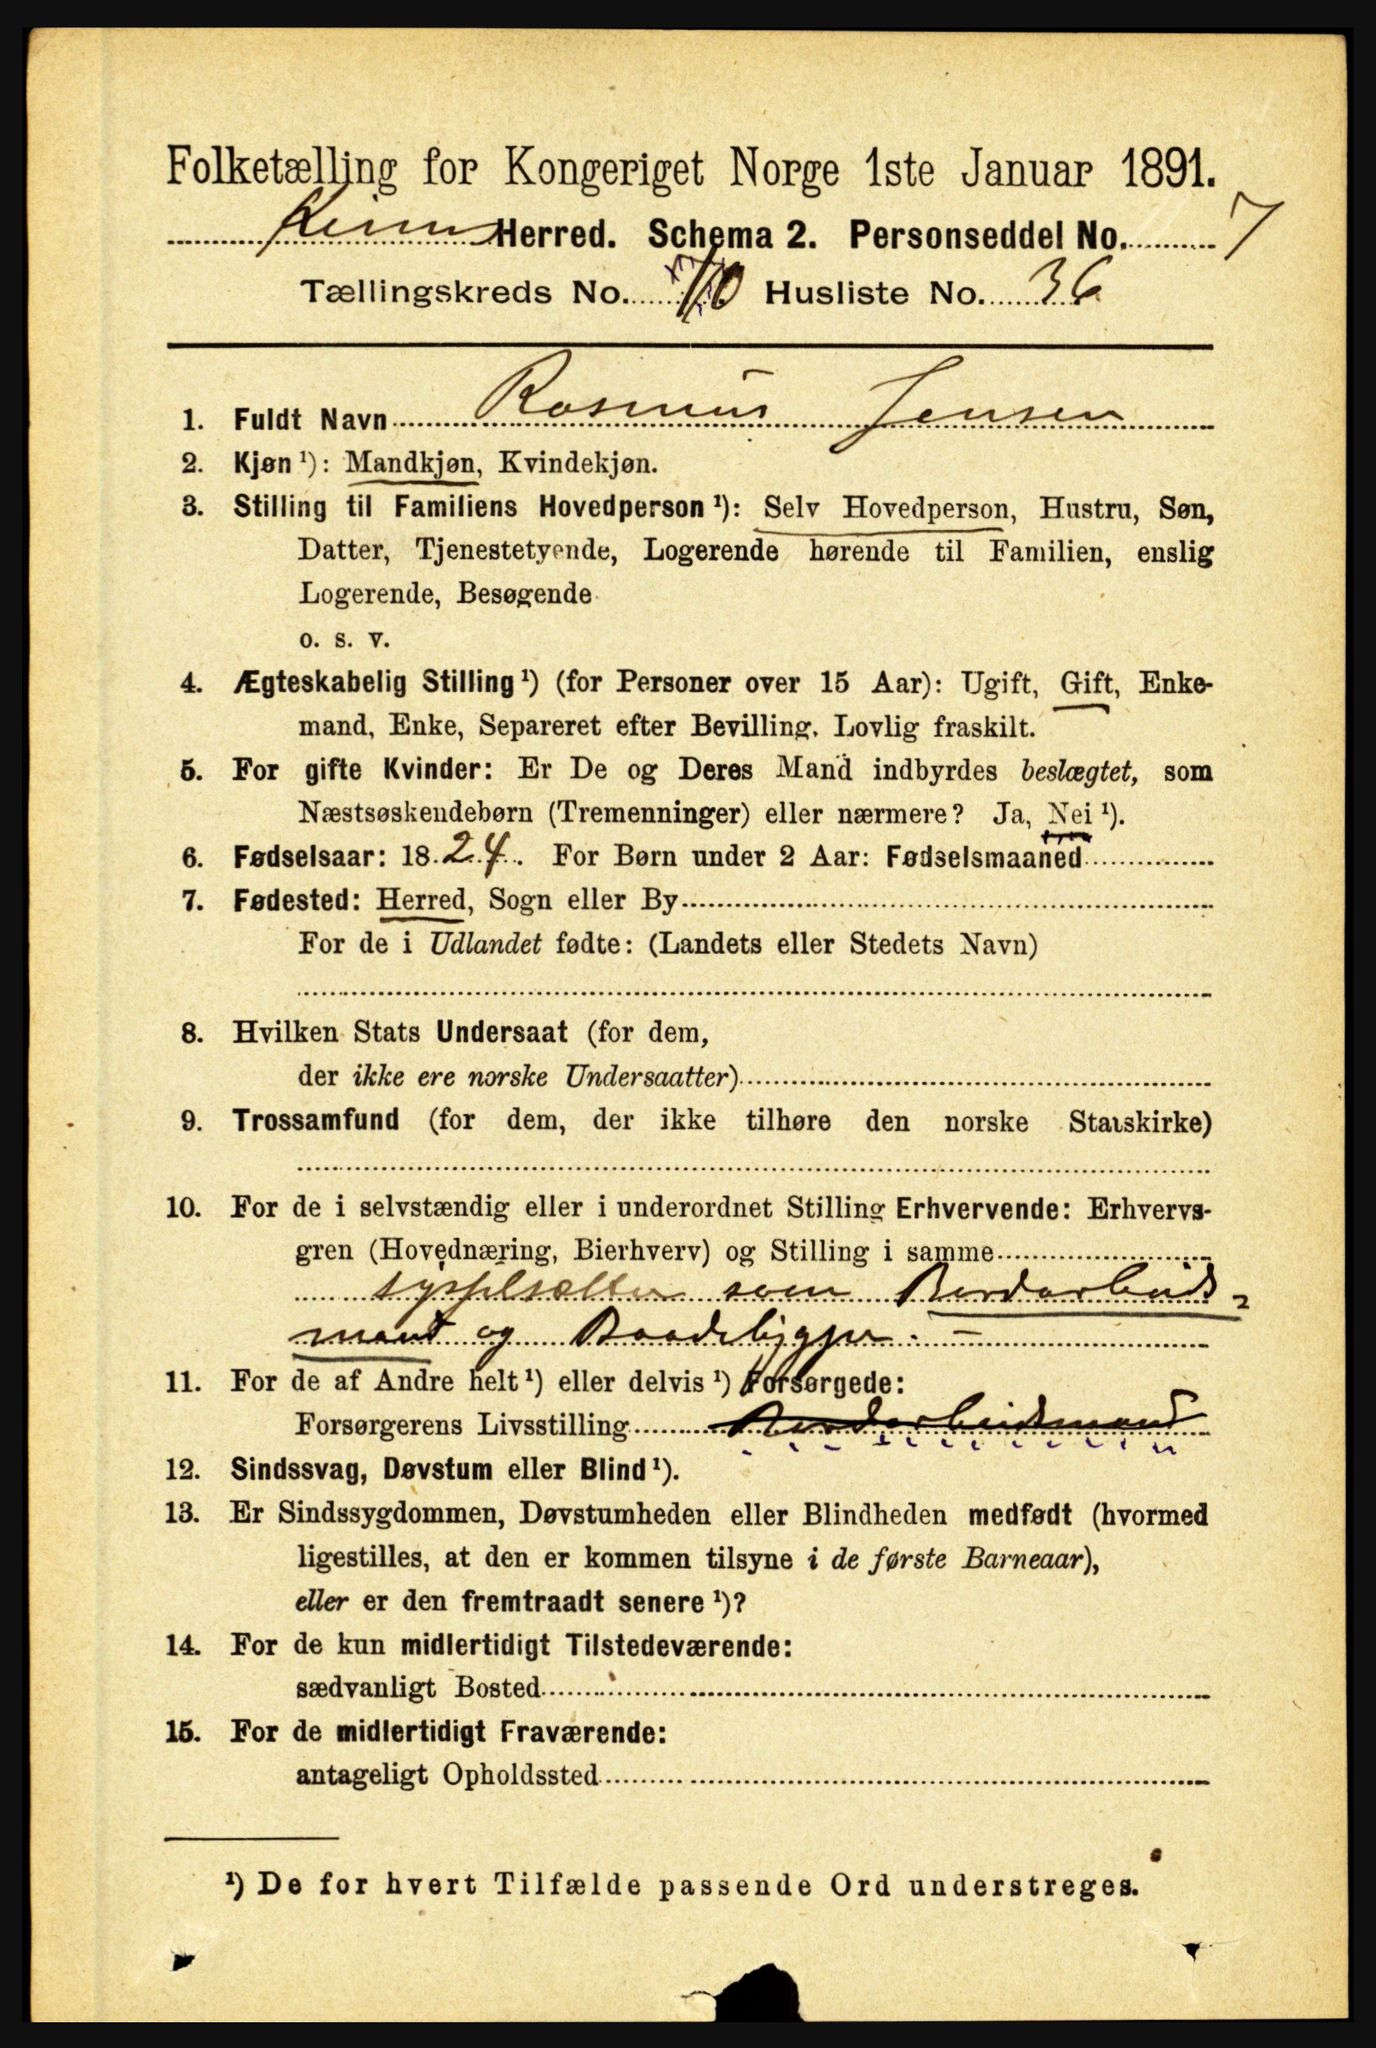 Folketælling for Kongeriget Norge 1ste Januar 1891.
Kinn Herred. Schema 2. Personseddel No. 7
Tællingskreds No. 10 Husliste No. 36
1. Fuldt Navn Rasmus Jensen
2. Kjøn ¹): Mandkjøn, Kvindekjøn.
3. Stilling til Familiens Hovedperson ¹): Selv Hovedperson, Hustru, Søn,
Datter, Tjenestetyende, Logerende hørende til Familien, enslig
Logerende, Besøgende
o. s. v.
4. Ægteskabelig Stilling ¹) (for Personer over 15 Aar): Ugift, Gift, Enke-
mand, Enke, Separeret efter Bevilling, Lovlig fraskilt.
5. For gifte Kvinder: Er De og Deres Mand indbyrdes beslægtet, som
Næstsøskendebørn (Tremenninger) eller nærmere? Ja, Nei ¹).
6. Fødselsaar: 1824. For Børn under 2 Aar: Fødselsmaaned
7. Fødested: Herred, Sogn eller By
For de i Udlandet fødte: (Landets eller Stedets Navn)
8. Hvilken Stats Undersaat (for dem,
der ikke ere norske Undersaatter)
9. Trossamfund (for dem, der ikke tilhøre den norske Statskirke)
10. For de i selvstændig eller i underordnet Stilling Erhvervende: Erhvervs-
gren (Hovednæring, Bierhverv) og Stilling i samme
sysselsætter som Bordarbeids-
mand og Baadebygger. -
11. For de af Andre helt ¹) eller delvis ¹) Forsørgede:
Forsørgerens Livsstilling Bordarbeidsmand
12. Sindssvag, Døvstum eller Blind ¹).
13. Er Sindssygdommen, Døvstumheden eller Blindheden medfødt (hvormed
ligestilles, at den er kommen tilsyne i de første Barneaar),
eller er den fremtraadt senere ¹)?
14. For de kun midlertidigt Tilstedeværende:
sædvanligt Bosted
15. For de midlertidigt Fraværende:
antageligt Opholdssted
¹) De for hvert Tilfælde passende Ord understreges.